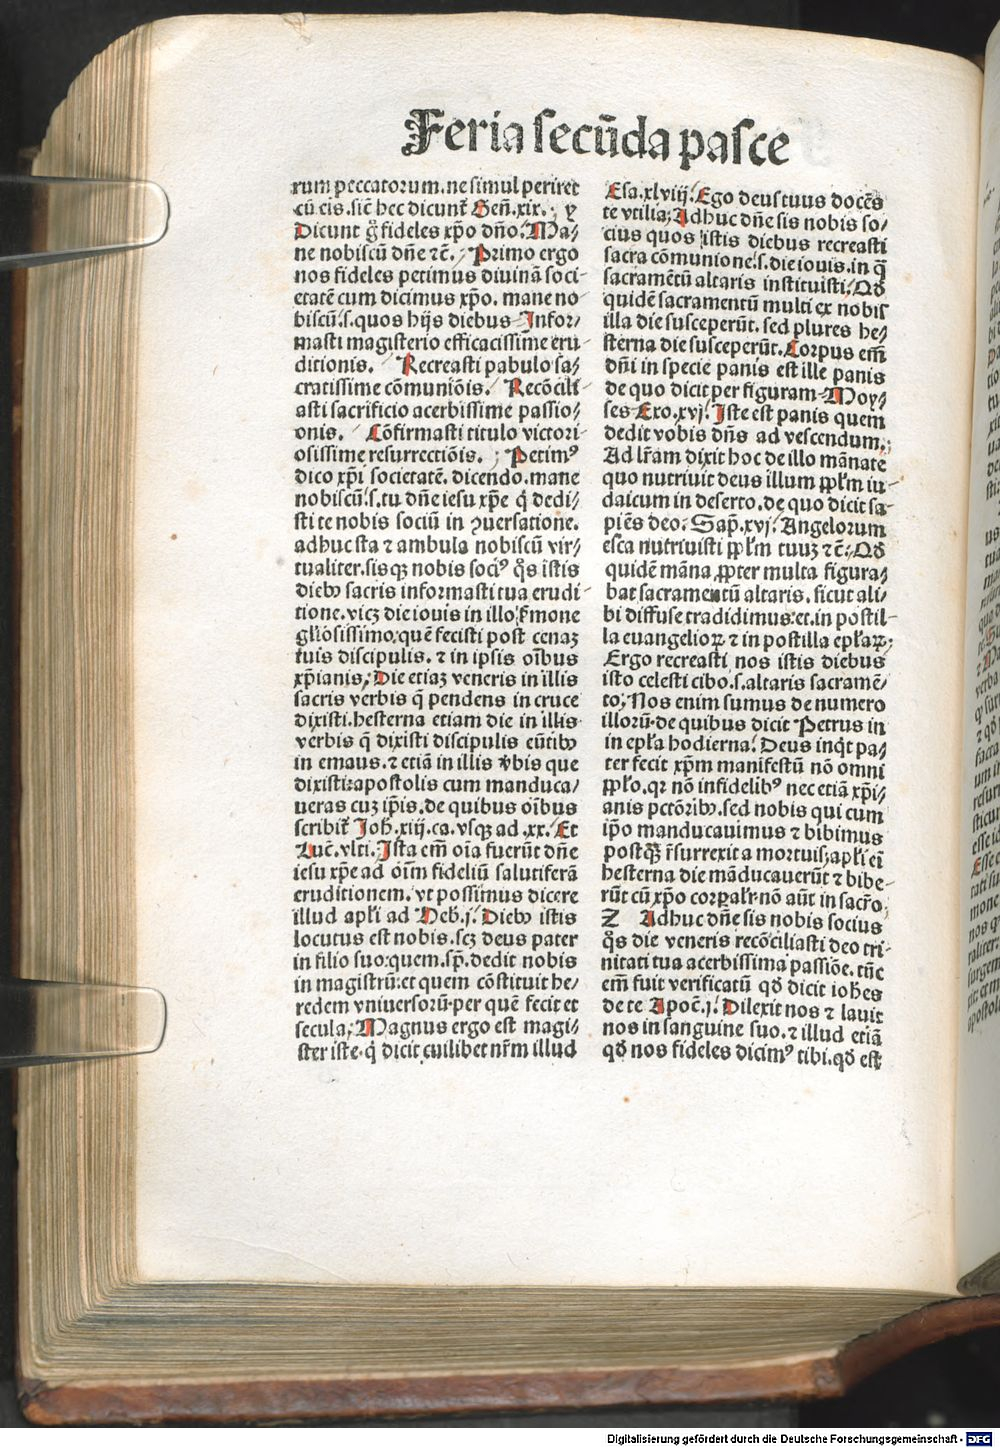 Feria secūda pasce
rum peccatorum. ne simul periret
cū eis. sic̄ hec dicunt᷑ Gen̄. xix. ; y
Dicunt g̊ fideles xp̄o dn̄o. Ma⸗
ne nobiscū dn̄e ⁊c̄. Primo ergo
nos fideles petimus diuinā soci⸗
etatē cum dicimus xp̄o. mane no⸗
biscū. s. quos hijs diebus Infor⸗
masti magisterio efficacissime eru⸗
ditionis. Recreasti pabulo sa⸗
cratissime cōmuniōis. Recōcili⸗
asti sacrificio acerbissime passio⸗
onis. Cōfirmasti titulo victori⸗
osissime resurrectiōis. ; Petimꝰ
dico xp̄i societatē. dicendo. mane
nobiscū. s. tu dn̄e iesu xp̄e q̄ dedi⸗
sti te nobis sociū in ꝯuersatione.
adhuc sta ⁊ ambula nobiscū vir⸗
tualiter. sisqꝫ nobis sociꝰ q̊s istis
diebꝰ sacris informasti tua erudi⸗
tione. vicꝫ die iouis in illo ẜmone
gl̄iosissimo. quē fecisti post cenaꝫ
tuis discipulis. ⁊ in ipsis oībus
xp̄ianis, Die etiaꝫ veneris in illis
sacris verbis q̄ pendens in cruce
dixisti. hesterna etiam die in illis
verbis q̄ dixisti discipulis eūtibꝰ
in emaus. ⁊ etiā in illis v̓bis que
dixisti apostolis cum manduca⸗
ueras cuꝫ ip̄is. de quibus oībus
scribit᷑ Joh̄. xiij. ca. vsqꝫ ad .xx. Et
Luc̄. vlti. Ista em̄ oīa fuerūt dn̄e
iesu xp̄e ad oīm fideliū salutiferā
eruditionem. vt possimus dicere
illud apl̄i ad Heb̄. j. Diebꝰ istis
locutus est nobis. scꝫ deus pater
in filio suo: quem. sp̄. dedit nobis
in magistrū: et quem cōstituit he⸗
redem vniuersorū. per quē fecit et
secula, Magnus ergo est magi⸗
ster iste. q̇ dicit cuilibet nr̄m illud
Esa. xlviij. Ego deus tuus docēs
te vtilia; Adhuc dn̄e sis nobis so⸗
cius quos istis diebus recreasti
sacra cōmunione. s. die iouis. in q̄
sacramētū altaris instituisti. Qd̄
quidē sacramentū multi ex nobis
illa die susceperūt. sed plures he⸗
sterna die susceperūt. Corpus em̄
dn̄i in specie panis est ille panis
de quo dicit per figuram Moy⸗
ses Exo. xvj. Iste est panis quem
dedit vobis dn̄s ad vescendum,
Ad lr̄am dixit hoc de illo mānate
quo nutriuit deus illum ppl̄m iu⸗
daicum in deserto. de quo dicit sa⸗
piēs deo. Sap̄. xvj. Angelorum
esca nutriuisti ppl̄m tuuꝫ ⁊c̄. Qd̄
quidē māna ꝓpter multa figura⸗
bat sacramentū altaris. sicut ali⸗
bi diffuse tradidimus: et. in postil⸗
la euangelioꝝ ⁊ in postilla epl̄aꝝ;
Ergo recreasti nos istis diebus
isto celesti cibo. s. altaris sacramē⸗
to; Nos enim sumus de numero
illorū. de quibus dicit Petrus in
in epl̄a hodierna. Deus inq̇t pa⸗
ter fecit xp̄m manifestū nō omni
ppl̄o. qꝛ nō infidelibꝰ nec etiā xp̄i⸗
anis pctōribꝰ. sed nobis qui cum
ip̄o manducauimus ⁊ bibimus
postqꝫ r̄surrexit a mortuis; apl̄i ei̇̄
hesterna die māducauerūt ⁊ bibe⸗
rūt cū xp̄o corꝑalr̄. nō aūt in sacr̄o.
Z Adhuc dn̄e sis nobis socius
q̊s die veneris recōciliasti deo tri⸗
nitati tua acerbissima passiōe. tūc
em̄ fuit verificatū qd̄ dicit ioh̄es
de te Apoc̄. j. Dilexit nos ⁊ lauit
nos in sanguine suo. ⁊ illud etiā
qd̄ nos fideles dicimꝰ tibi. qd̄ est
Digitalisierung gefördert durch die Deutsche Forschungsgemeinschaft - DFG